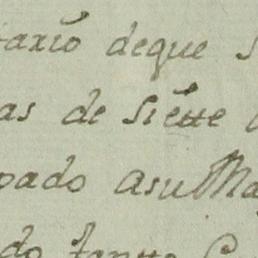 taxio deque s
as de siette
pado asu Ma
do tanto